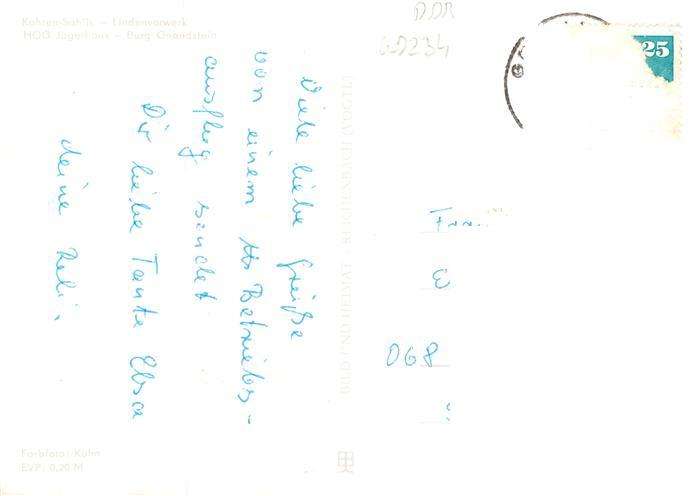 Kohren-Sahlis – Lindenvorwerk
HOG Jägerhaus – Burg Gnandstein
DDR
25
Viele liebe Grüße
von einem Betriebs-
ausflug sendet
Dir liebe Tante Elsa
deine
BILD UND HEIMAT REICHENBACH (VOGTL)
068
Farbfoto: Kühn
EVP: 0,20 M